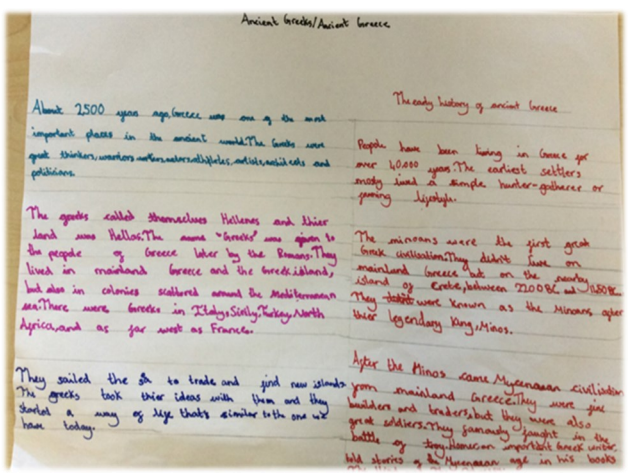 Ancient Greeks/Ancient Greece
About 2500 years ago, Greece was one of the most
important places in the ancient world. The Greeks were
great thinkers, warriors, writers, actors, athletes, artists, architects and
politicians.
The greeks called themselves Hellenes and thier
land was Hellas. The name "Greeks" was given to
the people of Greece later by the Romans. They
lived in mainland Greece and the Greek island,
but also in colonies scattered around the Mediterranean
sea. There were Greeks in Italy, Sicily, Turkey, North
Africa, and as far west as France.
They sailed the sea to trade and find new islands.
The greeks took thier ideas with them and they
started a way of life that's similar to the one we
have today.
The early history of ancient Greece
People have been living in Greece for
over 40,000 years. The earliest settlers
mostly lived a simple hunter-gatherer or
farming lifestyle.
The minoans were the first great
Greek civilisation. They didn't live on
mainland Greece but on the nearby
island of Crete, between 2200BC and 1450BC
They were known as the Minoans after
thier legendary King, Minos.
After the Minos came Mycenaean civilisation
from mainland Greece. They were fine
builders and traders, but they were also
great soldiers. They famously fought in the
battle of troy. Homer, an important Greek writer,
told stories of the Mycenaean age in his books